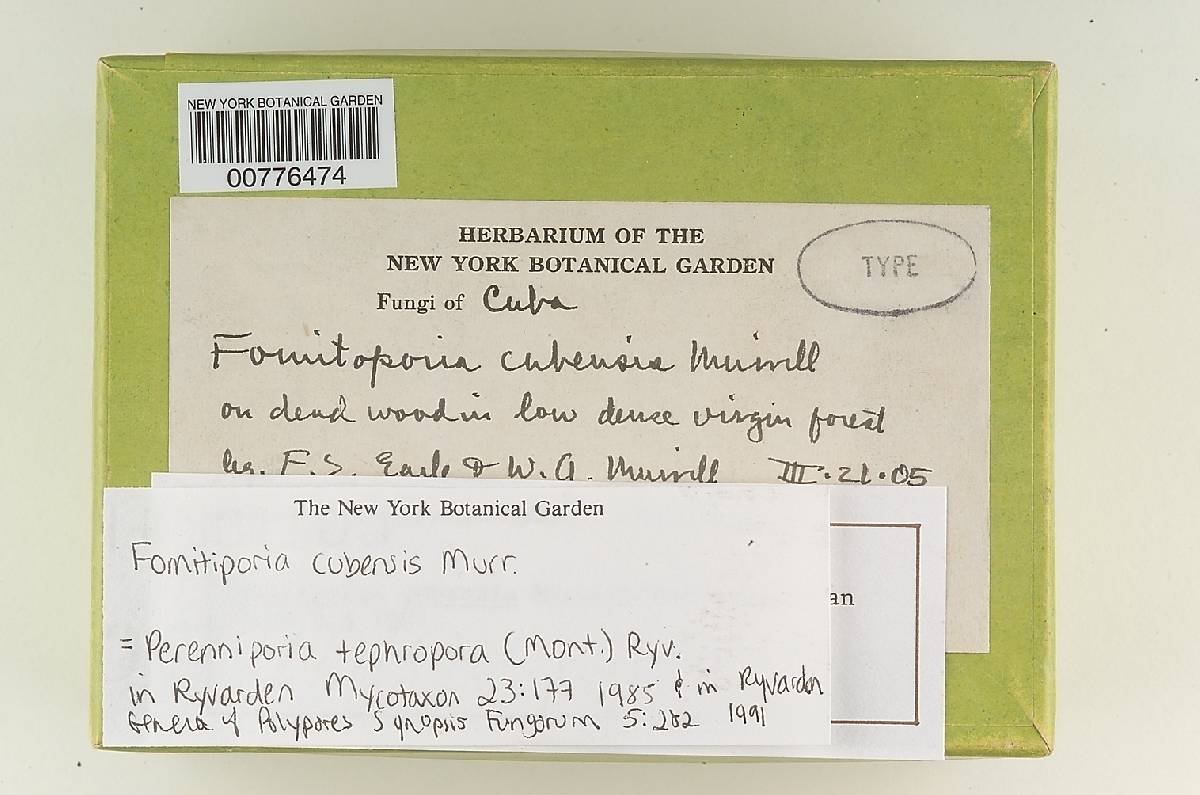 NEW YORK BOTANICAL GARDEN
00776474
HERBARIUM OF THE
NEW YORK BOTANICAL GARDEN
TYPE
Fungi of Cuba
Fomitoporia cubensis Murrill
on dead wood in low dense virgin forest
leg. F.S. Earle & W.A. Murrill III·21·05
The New York Botanical Garden
Fomitiporia cubensis Murr.
an
= Perenniporia tephropora (Mont.) Ryv.
in Ryvarden Mycotaxon 23:177 1985 & in Ryvarden
Genera of Polypores Synopsis Fungorum 5: 1991